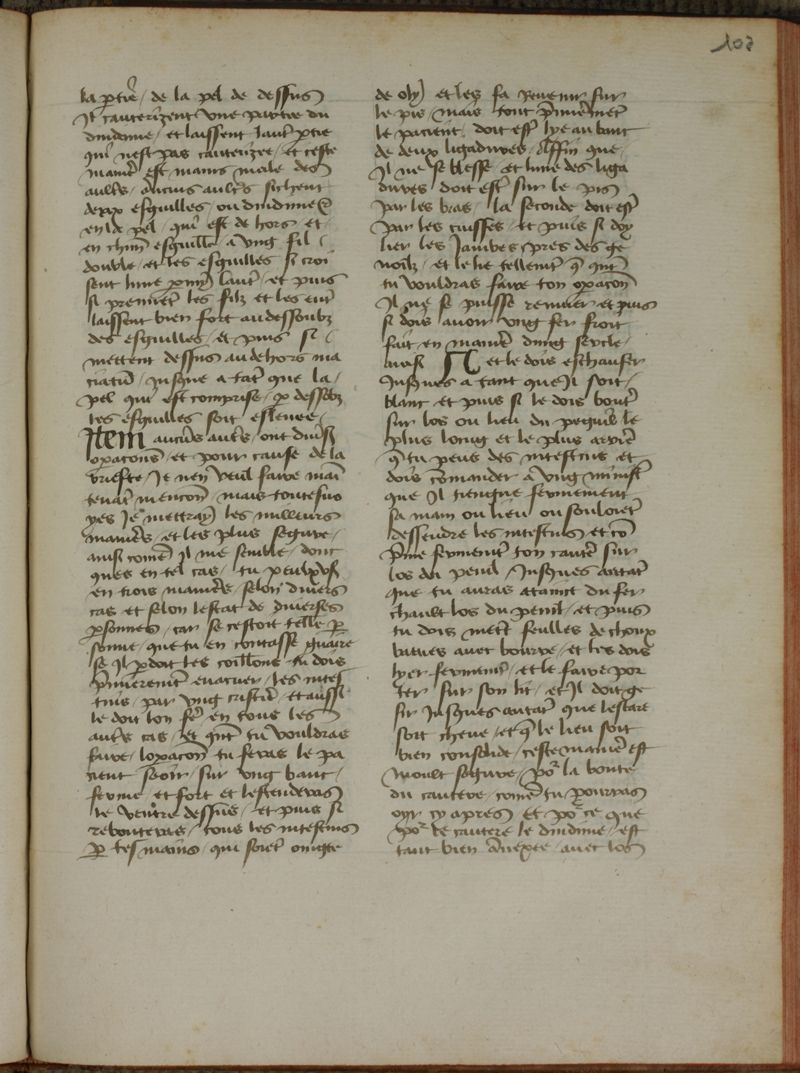 103
la partie / de la pel de dessus
Il cauterizent une partie du
dindime / et laissent laut partie
qui nest pas cauterizee / et ceste
maniere est mains male des
aultres / aucuns aultres fichent
deux esguilles ou dindime
en la pel / qui est de hors / et
en chune esguille a ung fil
double / et les esguilles si croi
sent lune parmy laut / et puis
si prennet les filz et les
laissent bien fort au dessoubz
des esguilles / et puis si
mettent dessus au dehors
jusque a tat que la
pel qui est comprise par dessoubz
les esguilles soit eslevee
Item aucuns autres ont divers
opacions / et pour cause de la
briefte / Je nen veul faire
mencion / mais toutesvo
yes Je mettray les milleurs
manieres / et les plus segure /
ainsi comme il me semble / donc
ques en tel cas / tu
en trois manieres / selon divers
cas et selon lestat de diverses
psonnes / car se cestoit telle p
sonne / que tu en contasse guaire
se Il pdoit les coillons / tu dois
premierement evacuer / les intes
tins / par ung cristere / et aussi
le doit lon fe en tous les
autres cas / et qnt tu vouldras
faire / lopacion tu feras le pa
cient seoir / sur ung banc /
ferme / et fort et lestenderas
le ventre dessus / et puis si
rebouteras / tous les intestins
p tes mains / qui soiet
de oly et les fa revenir sur
le pis / mais tout premieremet
le pacient / doit est lye au banc
de deux ligadures / Affin que /
Il ne se blesse / et lune des liga
dures doit est sur le pis
par les bras / la seconde doit est
par les cuisses / et puis si doy
lier les Jambes pres des ge
noilz / et le lie tellemet q qnt
tu vouldras faire ton opacion
Il ne se puisse remuer / et puis
si dois avoir ung fer froit
fait en maniere dung
ainsi et le dois eschaufer
Jusques a tant que Il soit /
blanc / et puis si le dois bout
sur los ou lieu du le
plus long et le plus
q tu peus des intestins et
dois comander a ung minist
que Il tiengne fermement
sa main ou lieu ou souloiet
dessendre les intestins / et
fermemet ton cautere sur
los du penil / Jusques autat
que tu auras attaint du fer
chault los du penil / et puis
tu dois mett feulles de choux
avec bourre / et les dois
lyer fermemet / et le faire por
ter sur son lit / et Il doit ge
sir Jusques autat que lescare
soit cheue / et q le lieu soit
bien consolide / ceste maniere est
moult segure / por la bonte
du cautere / come tu pourras
oyr cy apres / et por ce que
por le cautere le dindime / est
tant bien / avec los